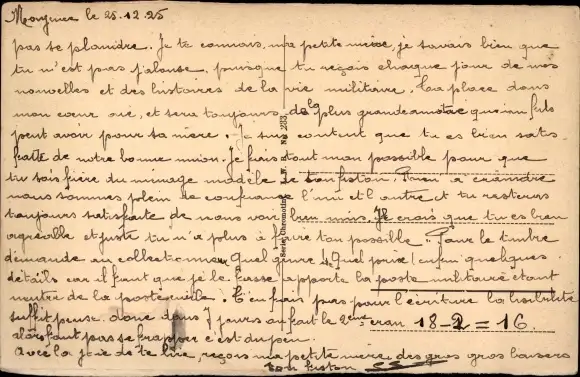 Mayence le 25.12.25
pas se plaindre. Je te connais, ma petite mère, je savais bien que
tu n'est pas jalouse, puisque tu reçois chaque jour de nos
nouvelles et des histoires de la vie militaire. La place dans
mon cœur est, et sera toujours de la plus grande amitié qu'un fils
peut avoir pour sa mère. Je suis content que tu es bien satis-
faite de notre bonne union. Je fais tout mon possible pour que
tu sois fière du ménage modèle de ton fiston. Rien à craindre
nous sommes plein de confiance l'un et l'autre et tu resteras
toujours satisfaite de nous voir bien unis. Je crois que tu es bien
agréable et juste tu n'a plus à faire ton possible. Pour le timbre
demande au collectionneur quel genre & quel prix! enfin quelques
détails car il faut que je le fasse apporté la poste militaire étant
neutre de la poste civile. T'en fais pas pour l'écriture la
suffit donc dans 7 jours au fait le 2ème cran 18-2=16.
alors faut pas se frapper c'est du peu.
Avec la joie de te lire, reçois ma petite mère des gros gros baisers
ton fiston
Série Chromatine No 233